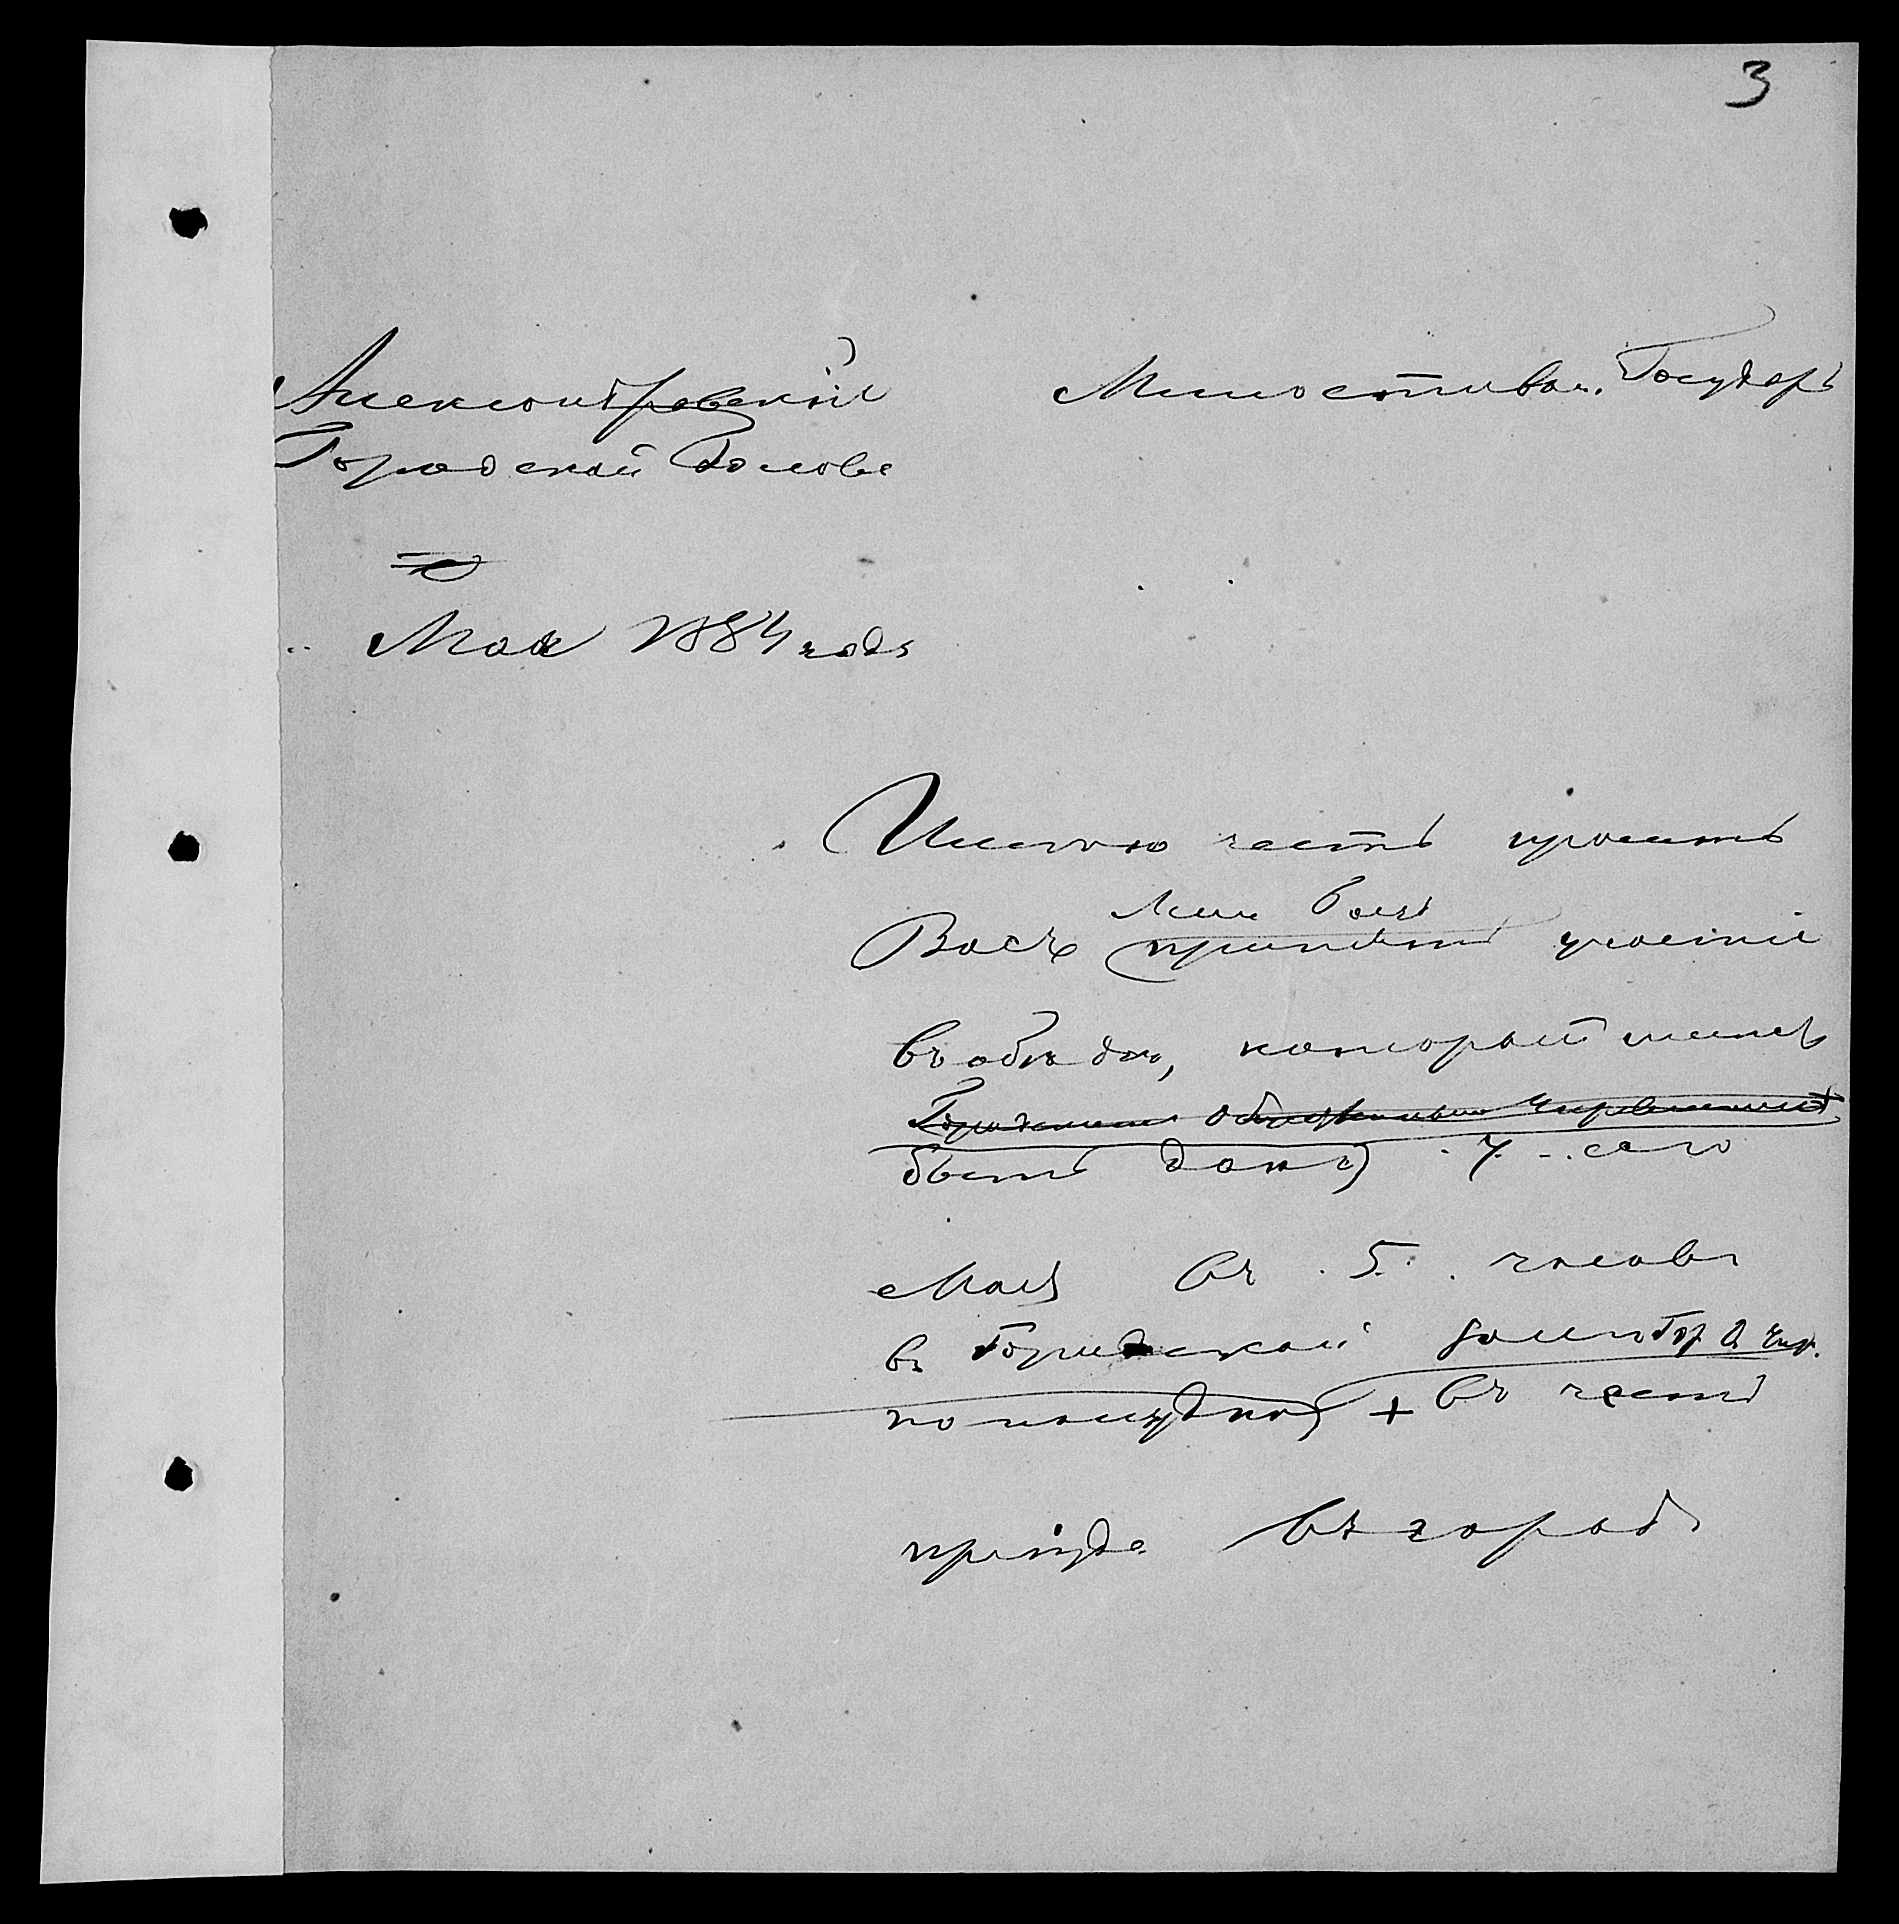 3
Александровскій
Милостивый Государь
Городской Голова
Мая 1884 года
Имѣю честь просить
Васъ принять участіе
въ обѣдѣ, который имѣетъ
Городскимъ Общественнымъ Управленіемъ
быть данъ 7 сего
Мая въ 5 часовъ
въ Городской
въ честь
пріѣзда въ городъ